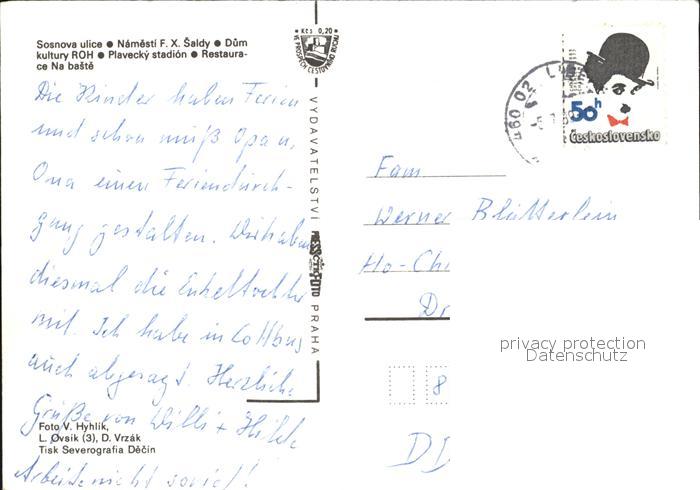 Sosnova ulice ● Náměstí F. X. Šaldy ● Dům
kultury ROH ● Plavecký stadión ● Restaura-
ce Na baště
Die Kinder haben Ferien
und schon muß Opa u.
Oma einen Feriendurch-
gang gestalten. Wir haben
diesmal die Enkeltochter
mit. Ich habe in Cottbus
auch abgesagt. Herzliche
Grüße von Willi + Hilde
Arbeite nicht soviel!
Foto V. Hyhlík,
L. Ovsík (3), D. Vrzák
Tisk Severografia Děčín
Kčs 0,20
VE PROSPĚCH CESTOVNÍHO RUCHU
VYDAVATELSTVÍ
PRAHA
460 02
50h
Československo
Fam
Werner Blütterlein
Ho-Chi
Dr
8
DD
privacy protection
Datenschutz